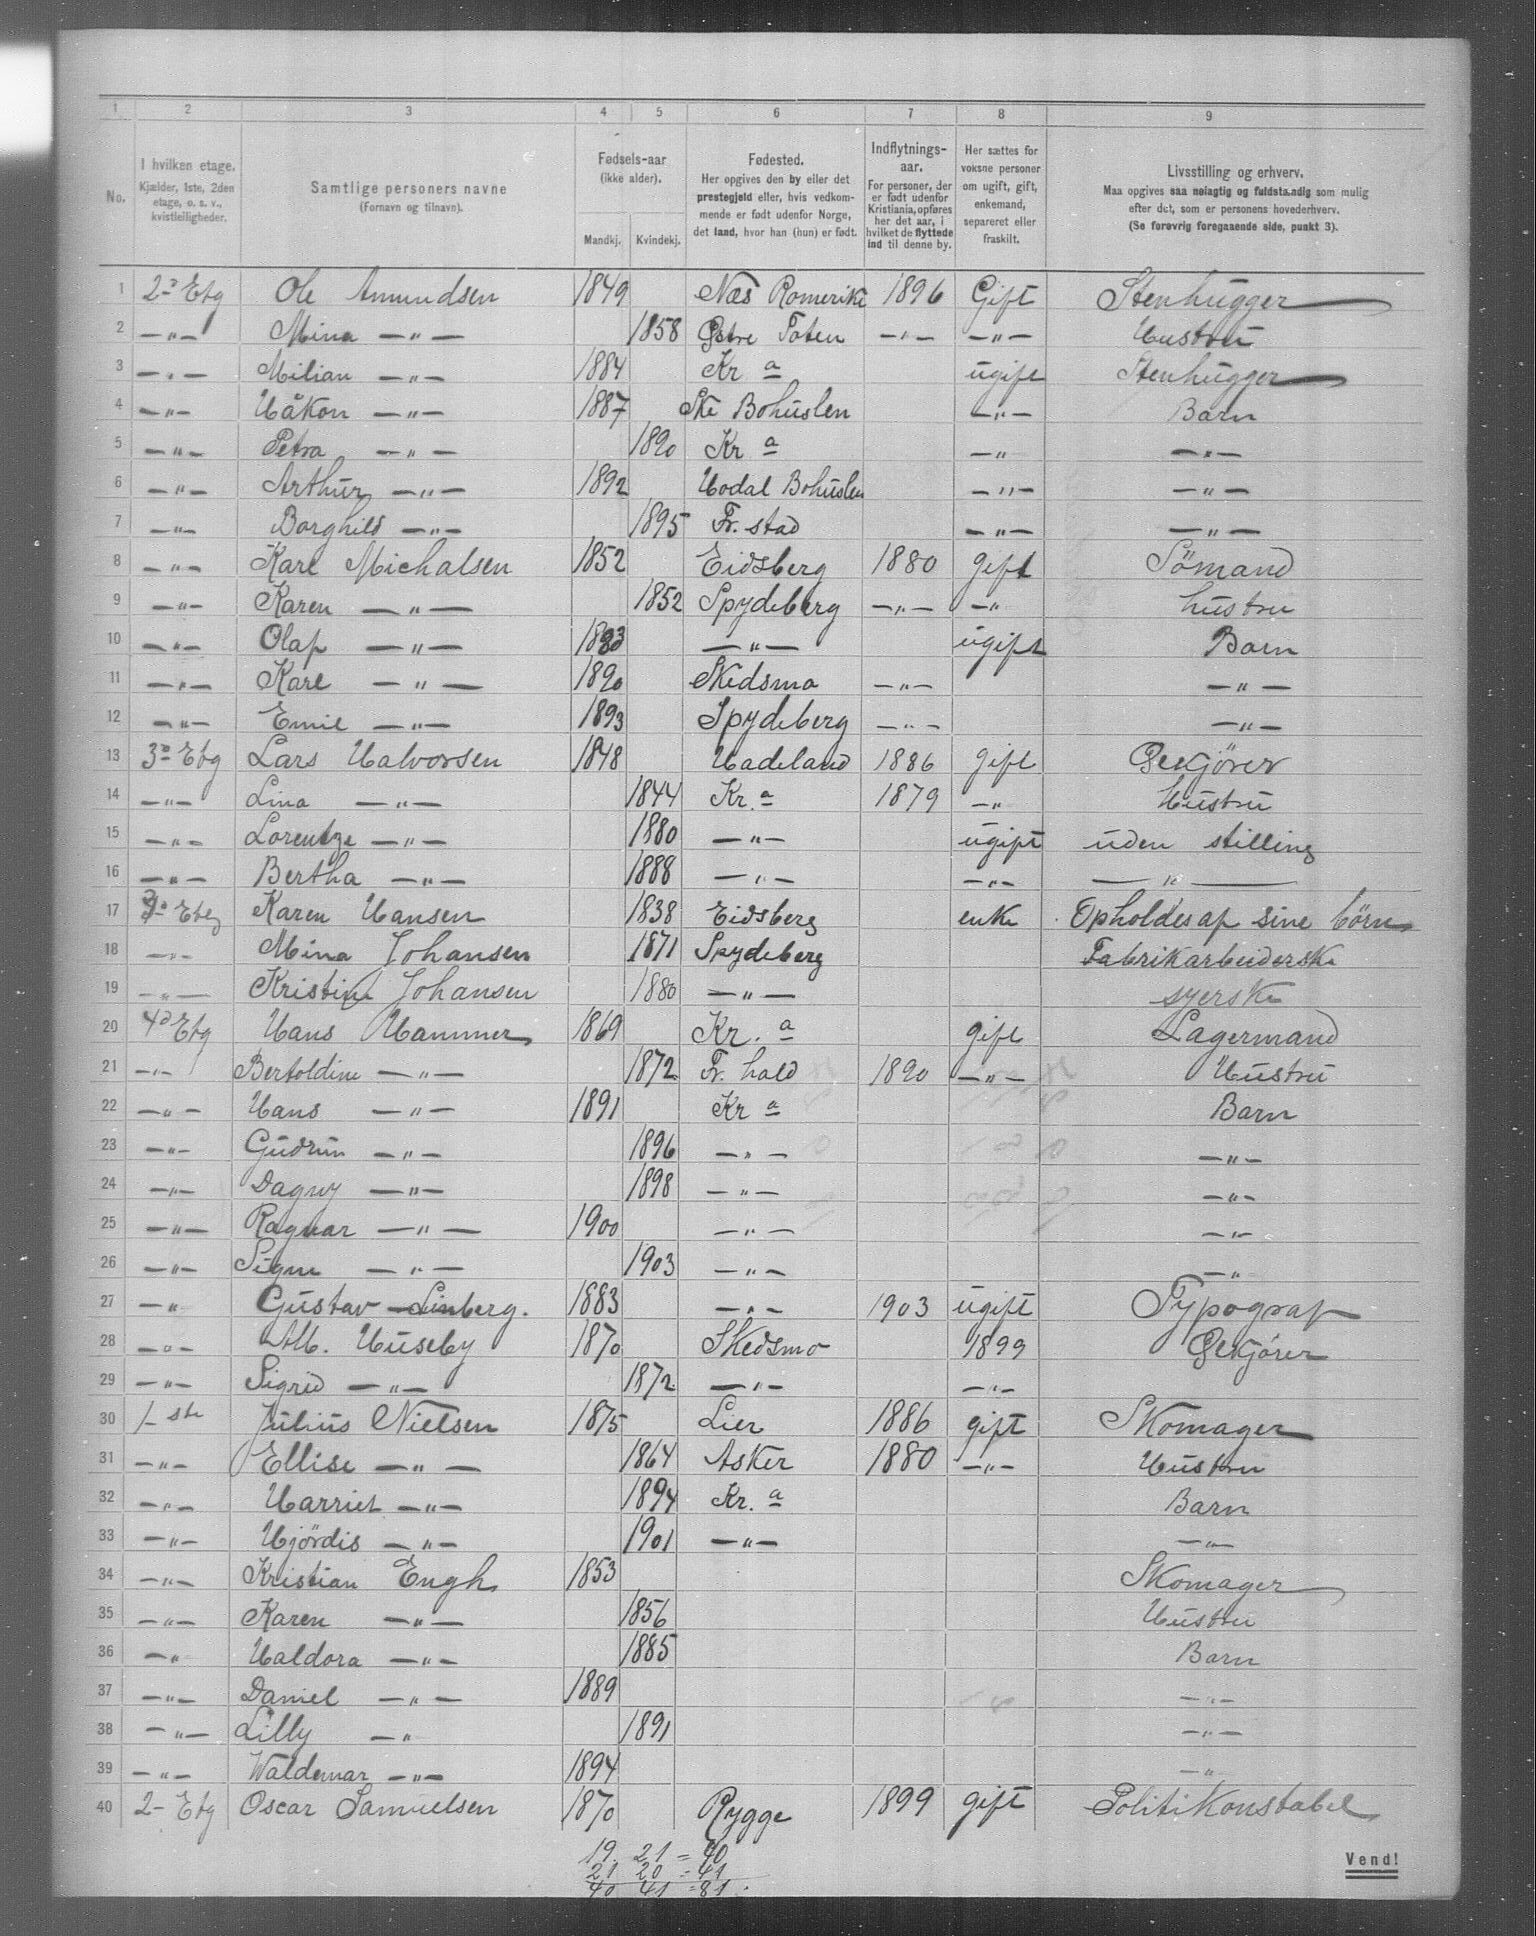 1 2 3 4 5 6 7 8 9
No.
I hvilken etage. Kjælder, 1ste, 2den etage, o. s. v., kvistleiligheder.
Samtlige personers navne (Fornavn og tilnavn).
Fødsels-aar (ikke alder). Mandkj. Kvindekj.
Fødested. Her opgives den by eller det prestegjeld eller, hvis vedkommende er født udenfor Norge, det land, hvor han (hun) er født.
Indflytnings-aar. For personer, der er født udenfor Kristiania, opføres her det aar, i hvilket de flyttede ind til denne by.
Her sættes for voksne personer om ugift, gift, enkemand, separeret eller fraskilt.
Livsstilling og erhverv. Maa opgives saa nøiagtig og fuldstændig som mulig efter det, som er personens hovederhverv. (Se forøvrig foregaaende side, punkt 3).
1 2den Etg Ole Amundsen 1849 Næs Romerike 1896 Gift Stenhugger
2 —"— Mina —"— 1858 Østre Toten —"— —"— Hustru
3 —"— Milian —"— 1884 Kr a ugift Stenhugger
4 —"— Håkon —"— 1887 Ske Bohuslen —"— Barn
5 —"— Petra —"— 1890 Kr a —" —"—
6 —"— Arthur —"— 1892 Hodal Bohuslen —"— —"—
7 —"— Borghild —"— 1895 Fr. stad —"— —"—
8 —"— Karl Michalsen 1852 Eidsberg 1880 gift Sömand
9 —"— Karen —"— 1852 Spydeberg —"— —" hustru
10 —"— Olaf —"— —"— ugift Barn
11 —"— Karl —"— 1890 Skedsmo —"— —"—
12 —"— Emil —"— 1893 Spydeberg —"— —"—
13 3die Etg Lars Halvorsen 1848 Hadeland 1886 gift Ølkjörer
14 —"— Lina —"— 1844 Kr. a 1879 —" Hustru
15 —"— Lorentze —"— 1880 —"— ugift uden stilling
16 —"— Bertha —"— 1888 —"— —"— —"—
17 3die Etg Karen Hansen 1838 Eidsberg enke Opholdes af sine börn
18 —"— Mina Johansen 1871 Spydeberg Fabrikarbeiderske
19 —"— Kristine Johansen 1880 —"— syerske
20 4d Etg Hans Hammer 1869 Kr. a gift Lagermand
21 —"— Bertoldine —"— 1872 Fr. hald 1890 —"— Hustru
22 —"— Hans —"— 1891 Kr a Barn
23 —"— Gudrun —"— 1896 —"— —"—
24 —"— Dagny —"— 1898 —"— —"—
25 —"— Ragnar —"— 1900 —"— —"—
26 —"— Signe —"— 1903 —"— —"
27 —" Gustav Linberg. 1883 —"— 1903 ugift Typograf
28 —"— Alb. Huseby 1870 Skedsmo 1899 Ølkjörer
29 —"— Sigrid —"— 1872 —"— —"—
30 1- ste Julius Nielsen 1875 Lier 1886 gift Skomager
31 —"— Ellise —"— 1864 Asker 1880 —"— Hustru
32 —"— Harriet —"— 1894 Kr. a Barn
33 —"— Hjördis —"— 1901 —"— —"—
34 —"— Kristian Engh 1853 Skomager
35 —"— Karen —"— 1856 Hustru
36 —" Haldora —"— 1885 Barn
37 —"— Daniel —"— 1889 —"—
38 —"— Lilly —" 1891 —"—
39 —"— Waldemar —"— 1894 —"
40 2- Etg Oscar Samuelsen 1870 Rygge 1899 gift Politikonstabel
19. 21 = 40
21 20 = 41
40 41 = 81.
Vend!